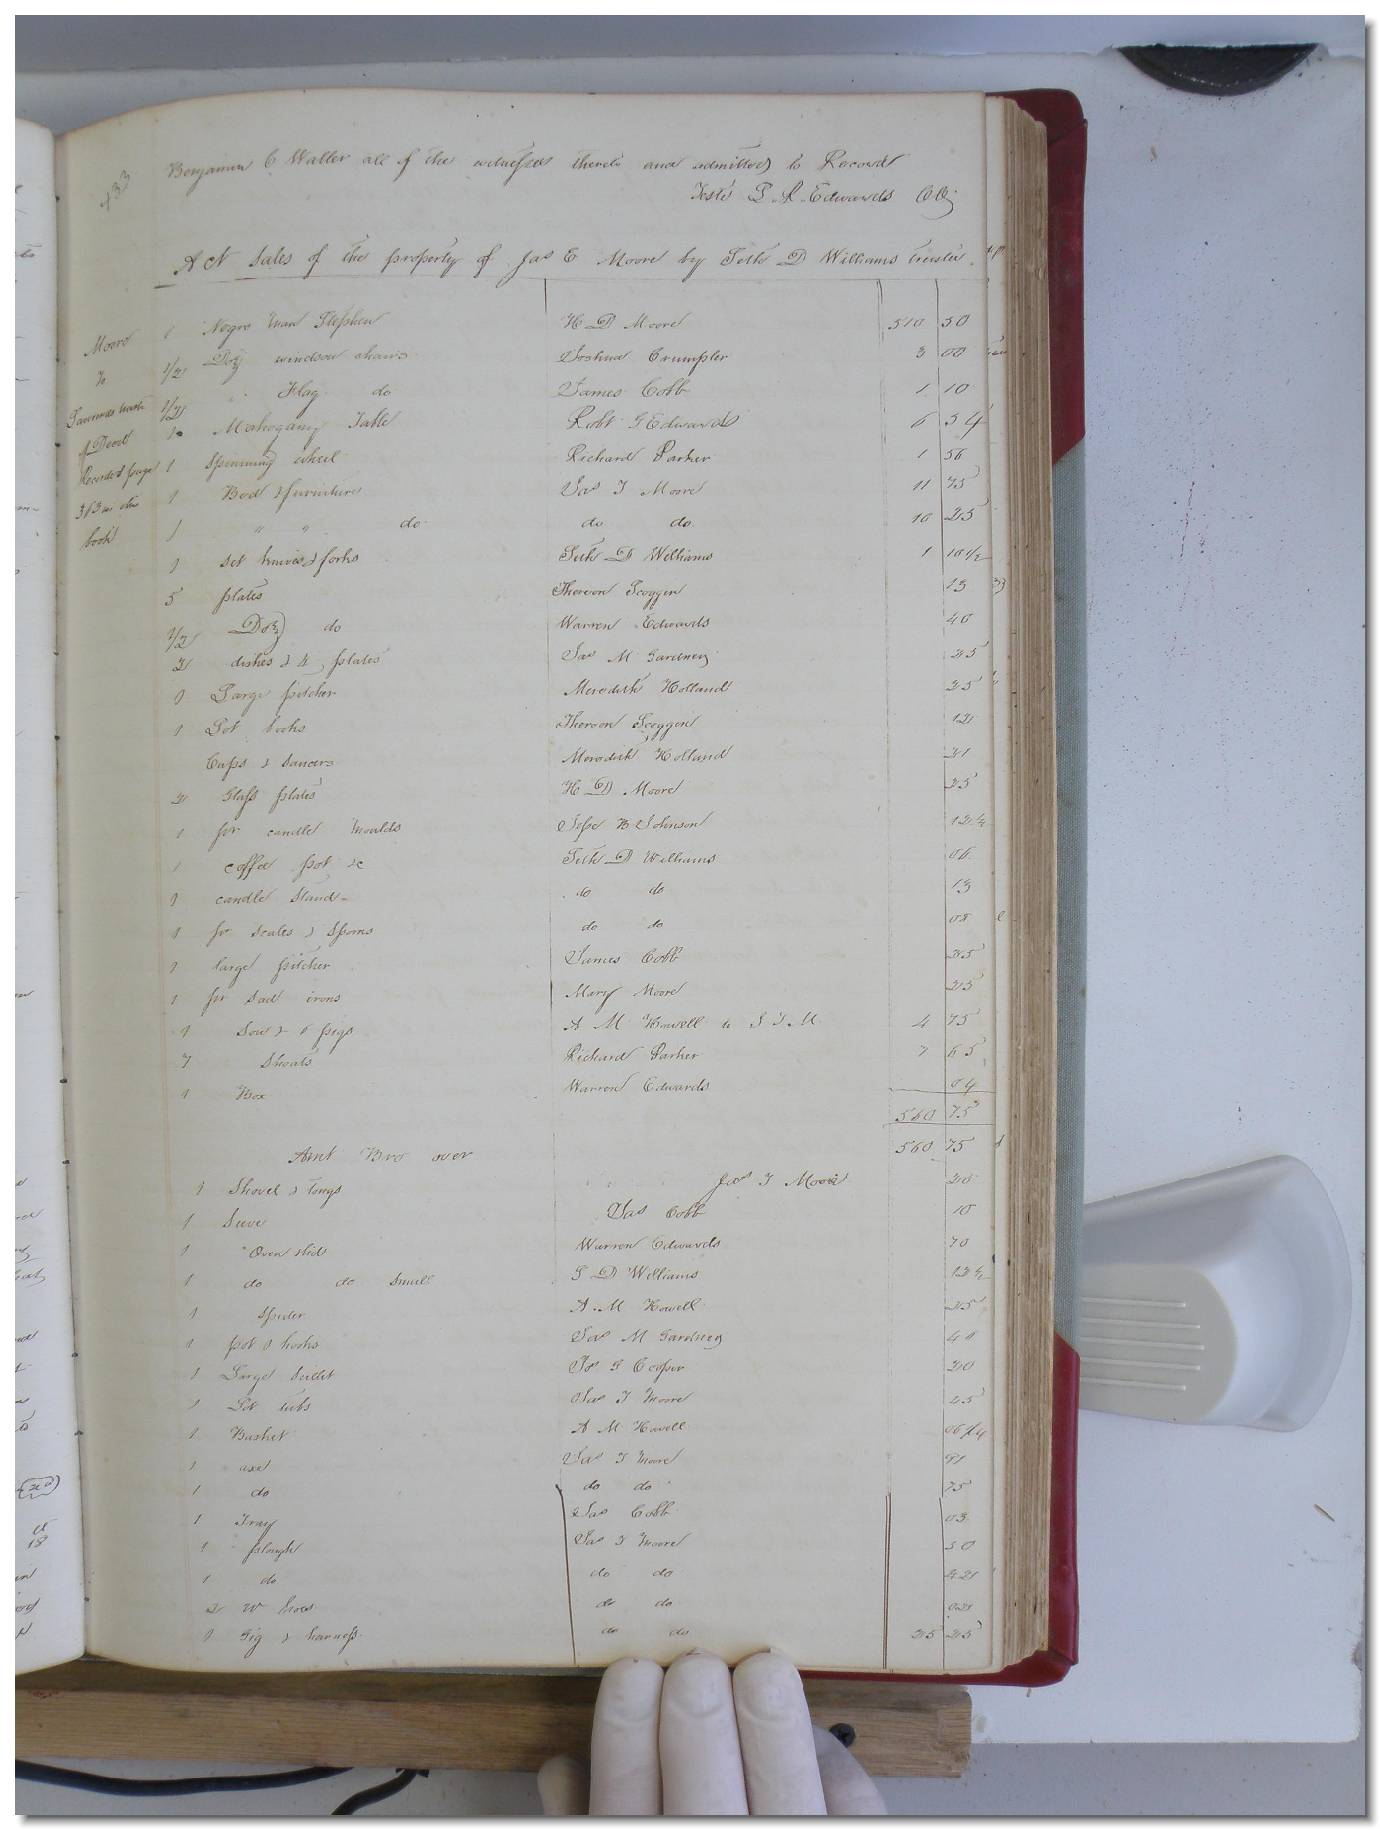 433
Benjamin C Waller all of the witnesses thereto and admitted to Record
Teste L R Edwards CC
Act Sales of the property of Jas E Moore by Seth D Williams trustee
Moore
to
trust
Deed
Recorded page
313 in this
book
1 Negro man Stephen H D Moore 510 50
1/2 Doz windsor chairs Joshua Crumpler 3 00
1/2 " Flag do James Cobb 1 10
1 Mahogany Table Robt G Edwards 6 54
1 Spinning wheel Richard Parker 1 56
1 Bed & furniture Jas T Moore 11 75
1 " " do do do 10 25
1 Set knives & forks Seth D Williams 1 10 1/2
5 plates Theron Scoggen 13
1/2 Doz do Warren Edwards 40
2 dishes & 4 plates Jas M Gardney 25
1 Large pitcher Meredith Holland 25
1 Lot books Theron Scoggen 12
Cups & Saucers Meredith Holland 21
2 Glass plates H D Moore 25
1 pr candle moulds Jesse B Johnson 12 1/2
1 coffee pot &c Seth D Williams 06
1 candle Stand do do 13
1 pr Scales & Spoons do do 05
1 large pitcher James Cobb 25
1 pr Sad irons Mary Moore 25
1 Sow & 6 pigs A M Howell to J T M 4 75
7 Shoats Richard Parker 7 65
1 Box Warren Edwards 04
560 75
Amt Bro over 560 75
1 Shovel & tongs Jas T Moore 20
1 Sieve Jas Cobb 10
1 Oven & lid Warren Edwards 70
1 do do Small S D Williams 12 1/2
1 Spider A. M Howell 25
1 pot & hooks Jas M Gardney 41
1 Large Skillet Jos G Cooper 20
1 Lot tubs Jas T Moore 25
1 Basket A M Howell 06 1/4
1 axe Jas T Moore 91
1 do do do 75
1 Tray Jas Cobb 03
1 plough Jas T Moore 50
1 do do do 42
2 W hoes do do 02
1 Gig & harness do do 25 25